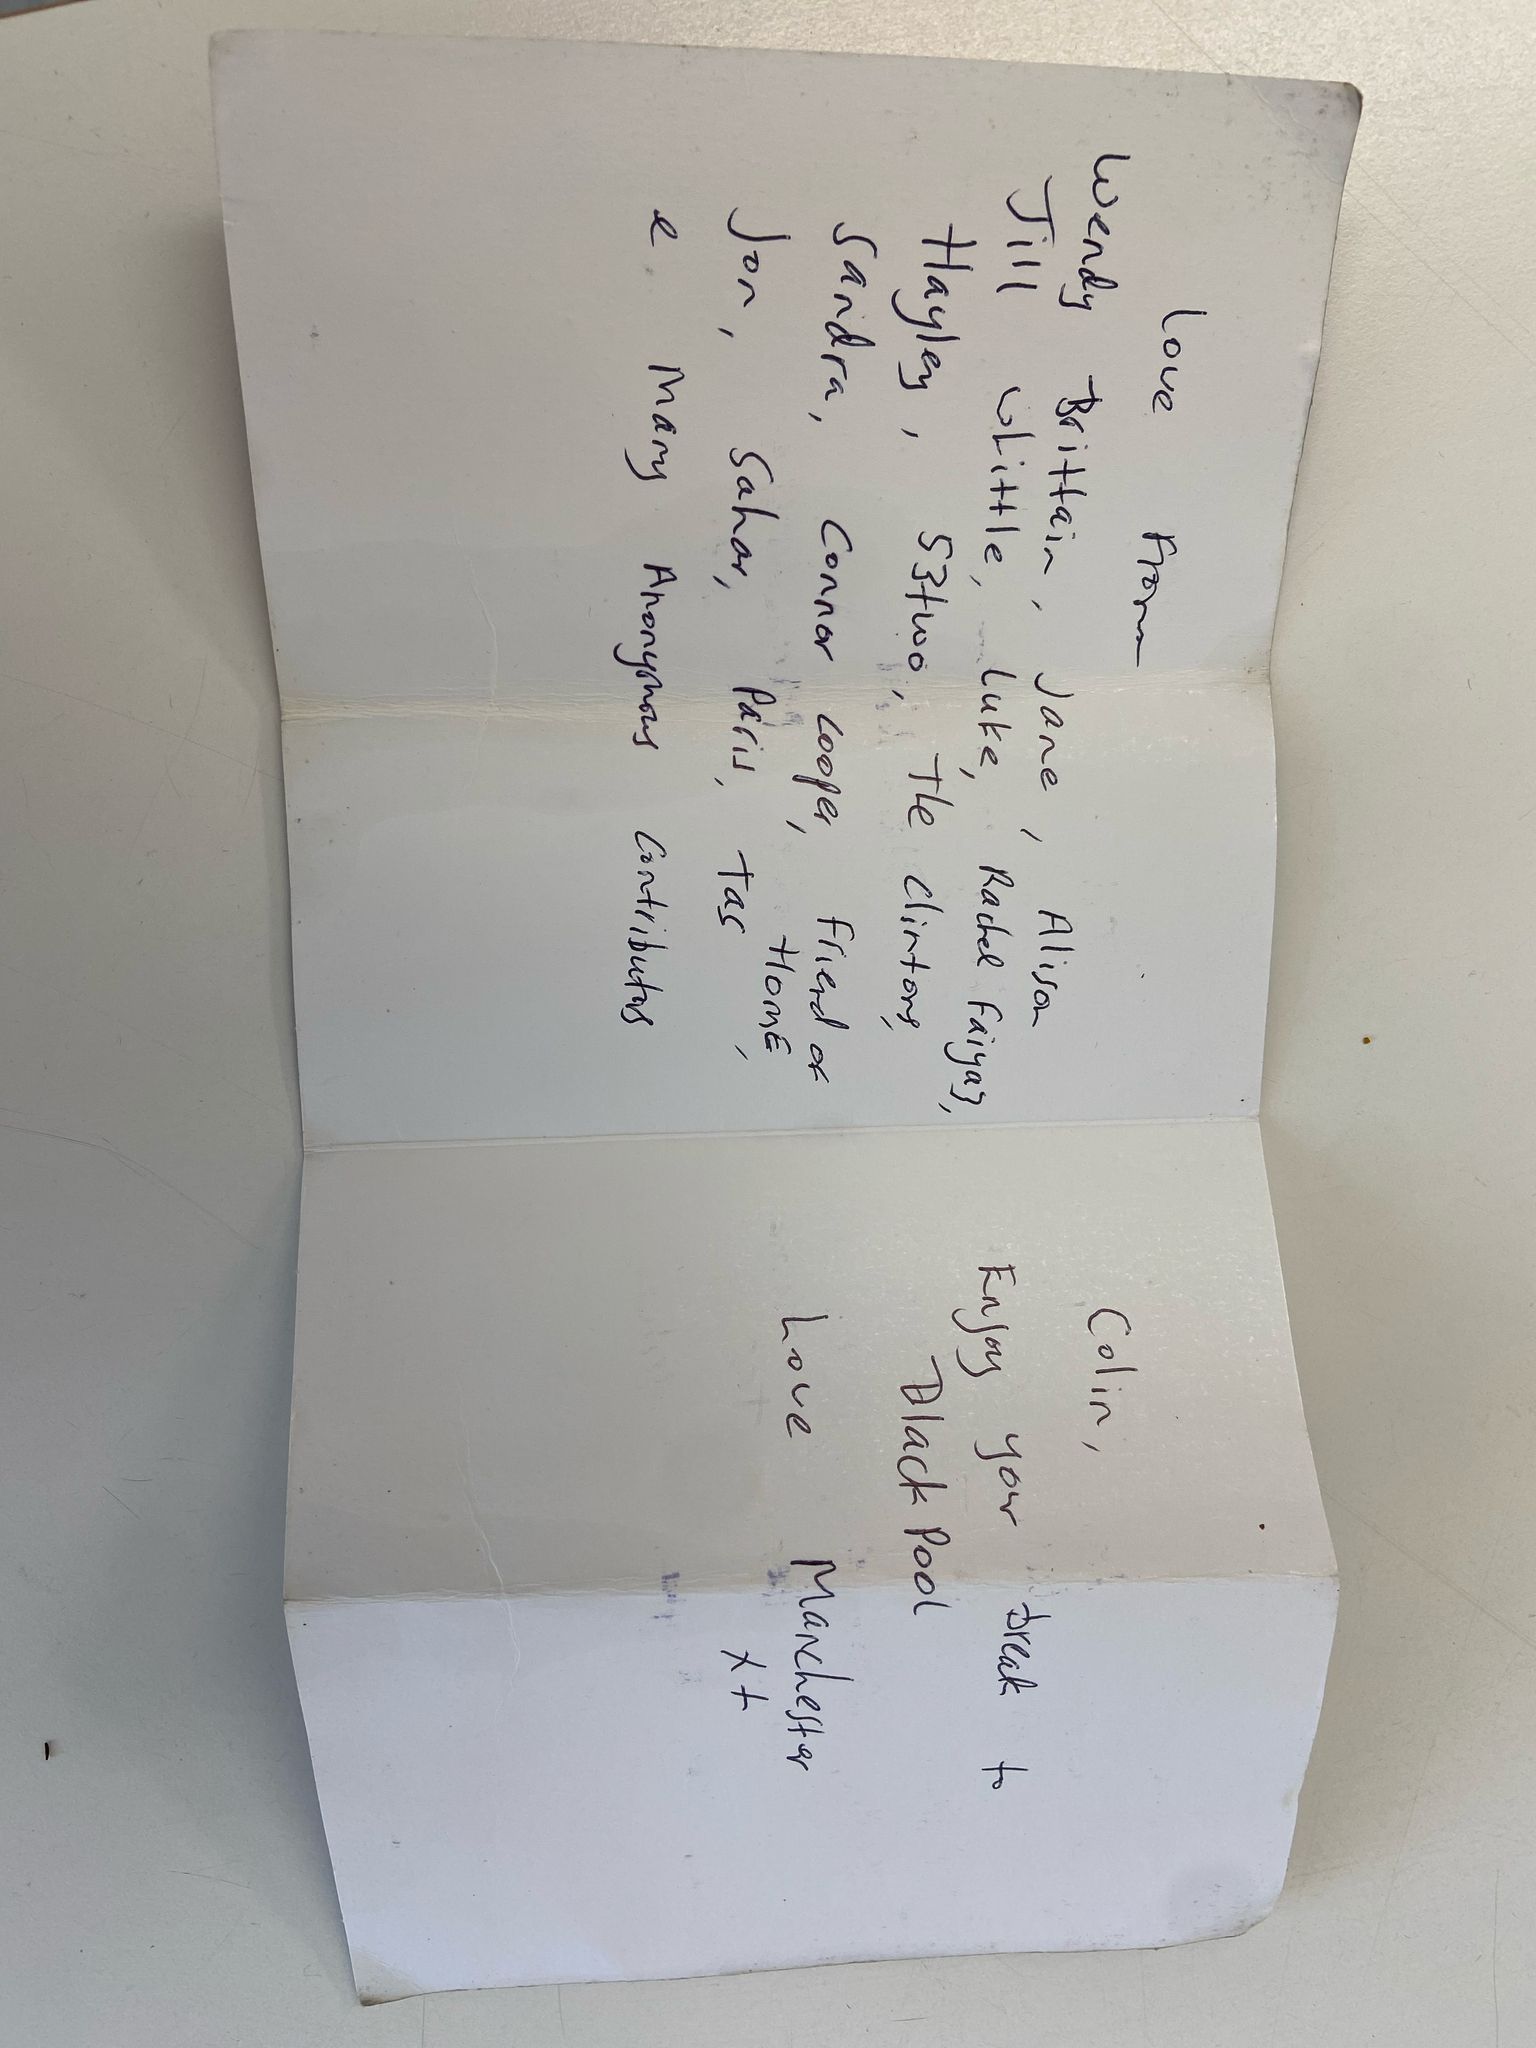 Love From
Wendy Brittain, Jane, Alison
Jill Whittle, Luke, Rachel Faiyaz,
Hayley, 53two, The Clintons,
Sandra, Connor Cooper, Friend of
HOME
Jon, Sahar, Paris, Tas,
e Many Anonymous Contributus
Colin,
Enjoy your break to
Black Pool
Love Manchester
x +